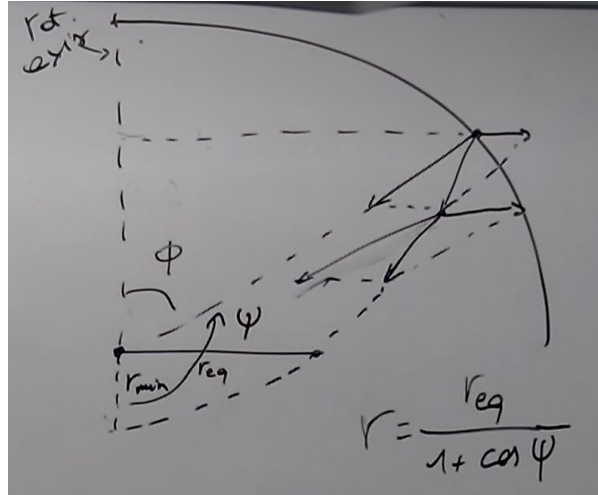 rot.
axis
ϕ
ψ
r_min
r_eq
r = r_eq / (1 + cos ψ)